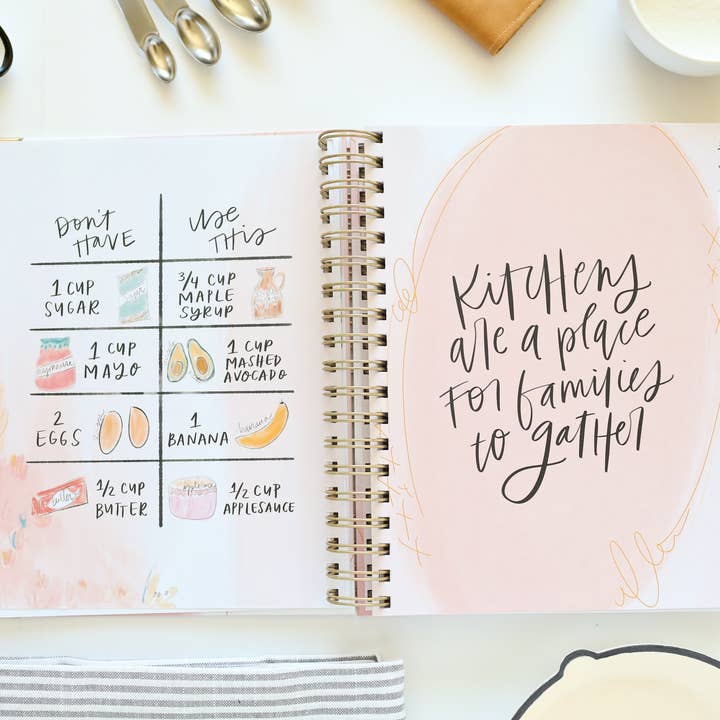 Don't Have
Use This
1 CUP SUGAR
sugar
3/4 CUP MAPLE SYRUP
mayonnaise
1 CUP MAYO
1 CUP MASHED AVOCADO
2 EGGS
eggs
1 BANANA
banana
butter
1/2 CUP BUTTER
applesauce
1/2 CUP APPLESAUCE
Kitchens
are a place
for families
to gather